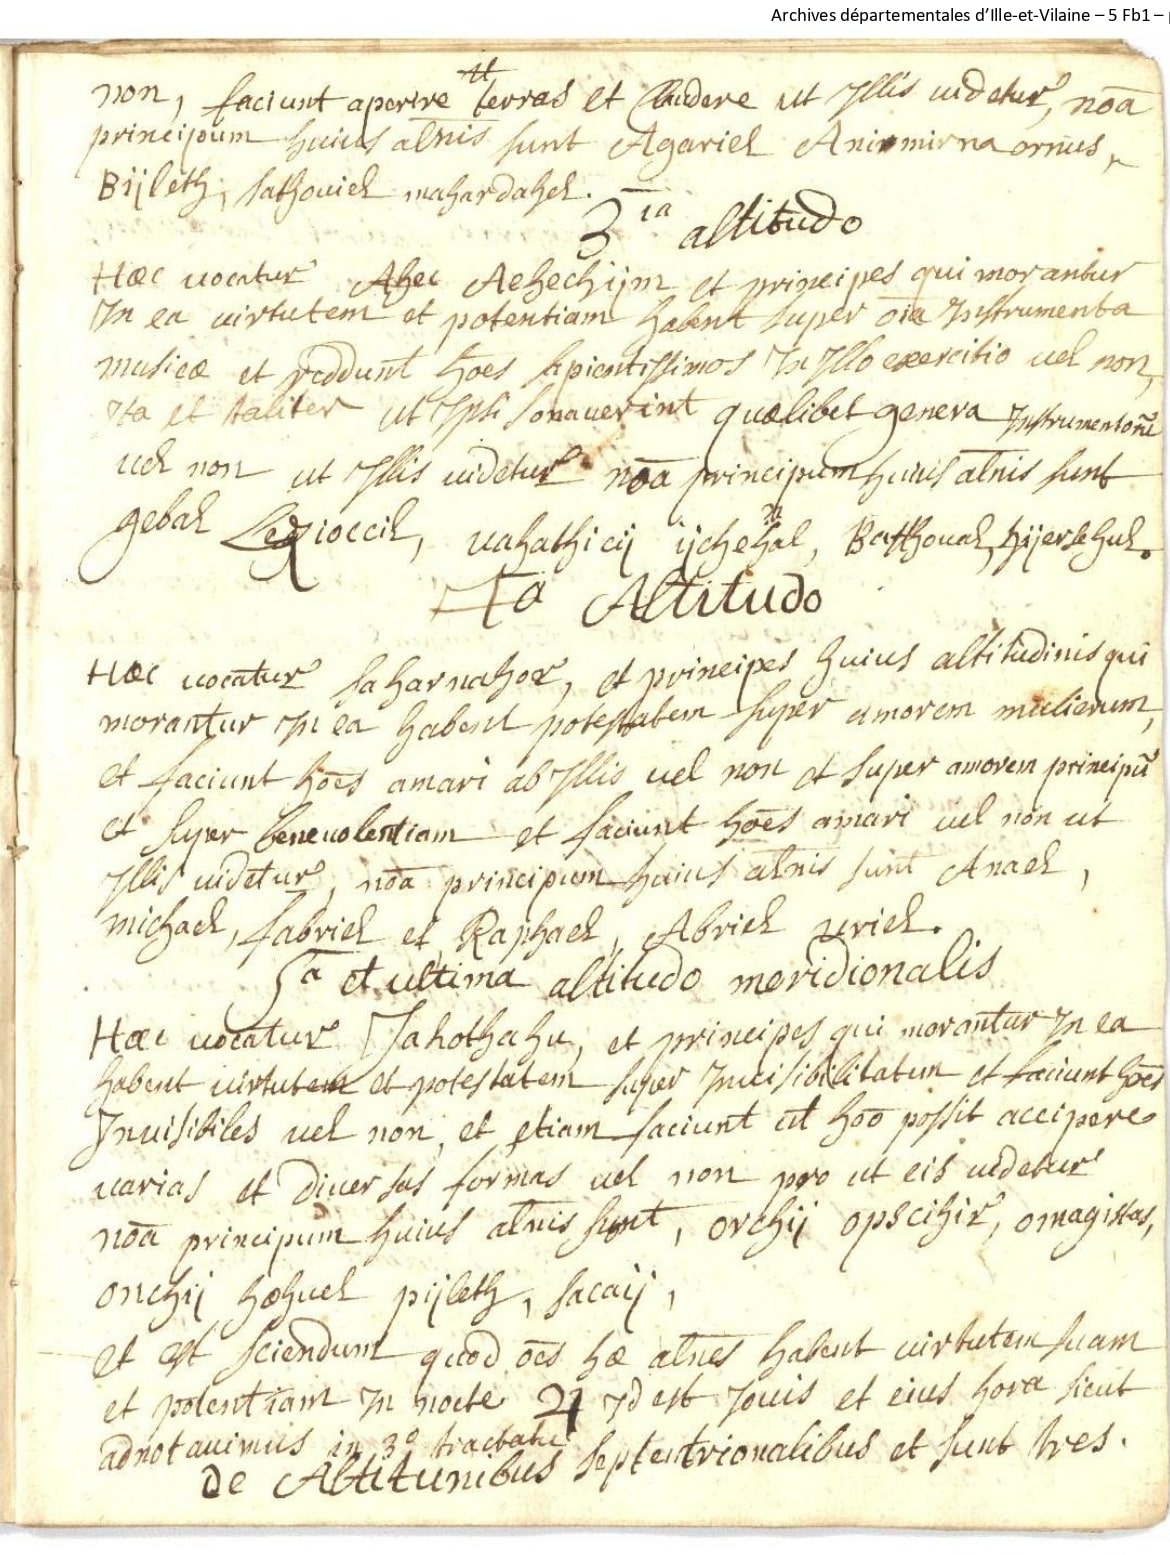 Archives départementales d’Ille-et-Vilaine – 5 Fb1 –
non, faciunt aperire terras et claudere ut Jllis uidetur, nōa
principum huius alnis sunt Agariel Aniormirna ornus,
Bijleth, sathouiel mahardahel.
3ia altitudo
Hæc uocatur Ahec Aehechijm et principes qui morantur
Jn ea uirtutem et potentiam habent super oīa Jnstrumenta
musicæ et reddunt hōes sapientissimos Jn Jllo exercitio uel non,
Jta et taliter ut Jpsi sonauerint quælibet genera Jnstrumentorū
uel non ut Jllis uidetur nōa principum huius alnis sunt
gebal Legioccil, uahathicij ijchehal, Batthoual, hijersehul.
4a Altitudo
Hæc uocatur saharnahor, et principes huius altitudinis qui
morantur Jn ea habent potestatem super amorem mulierum,
et faciunt hōes amari ab Jllis uel non et super amorem principū
et super beneuolentiam et faciunt hōes amari uel non ut
Jllis uidetur, nōa principum huius alnis sunt Anael,
michael, sabriel et Raphael, Abriel uriel.
5a et ultima altitudo meridionalis
Hæc uocatur Jahothahu, et principes qui morantur Jn ea
habent uirtutem et potestatem super Jnuisibilitatem et faciunt hōes
Jnuisibiles uel non, et etiam faciunt ut hōo possit accipere
uarias et diuersas formas uel non pro ut eis uidetur
nōa principum huius alnis sunt, orchij opscihir, omagistas,
onchij hæhuel pijleth, sacaij,
et est sciendum quod ōes hæ alnes habent uirtutem suam
et potentiam Jn nocte ♃ Jd est Jouis et eius hora sicut
adnotauimus in 3º tractatu
De Altitunibus septentrionalibus et sunt tres.